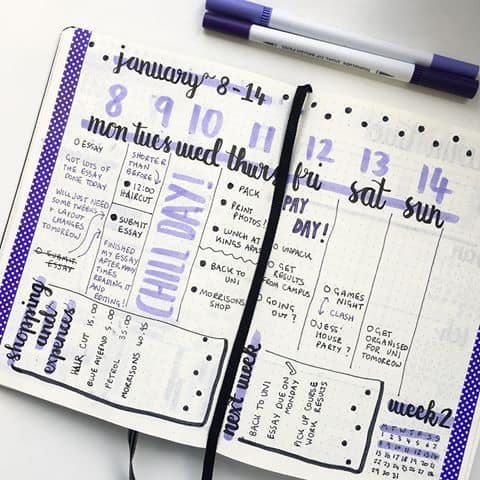 january 8-14
8 9 10 11 12 13 14
mon tues wed thurs fri sat sun
O ESSAY
GOT LOTS
OF THE
ESSAY
DONE TODAY
WILL JUST NEED
SOME TWEEKS
+ LAYOUT
CHANGES
TOMORROW
O SUBMIT
ESSAY
SHORTER
THAN
BEFORE
12:00
HAIRCUT
SUBMIT
ESSAY
FINISHED
MY ESSAY
AFTER MANY
TIMES
READING IT
AND
EDITING!
CHILL DAY!
PACK
PRINT
PHOTOS!
LUNCH AT
KINGS
BACK TO
UNI
MORRISONS
SHOP
PAY
DAY!
O UNPACK
O GET
RESULTS
FROM CAMPUS
O GOING
OUT?
O GAMES
NIGHT
CLASH
O JESS'
HOUSE
PARTY?
O GET
ORGANISED
FOR UNI
TOMORROW
shopping
and
expenses
HAIR CUT 15.00
PETROL 35.00
MORRISONS
next week
BACK TO UNI
ESSAY DUE ON
MONDAY
PICK UP COURSE
WORK RESULTS
week 2
M T W T F S S
1 2 3 4 5 6 7
8 9 10 11 12 13 14
15 16 17 18 19 20 21
22 23 24 25 26 27 28
29 30 31